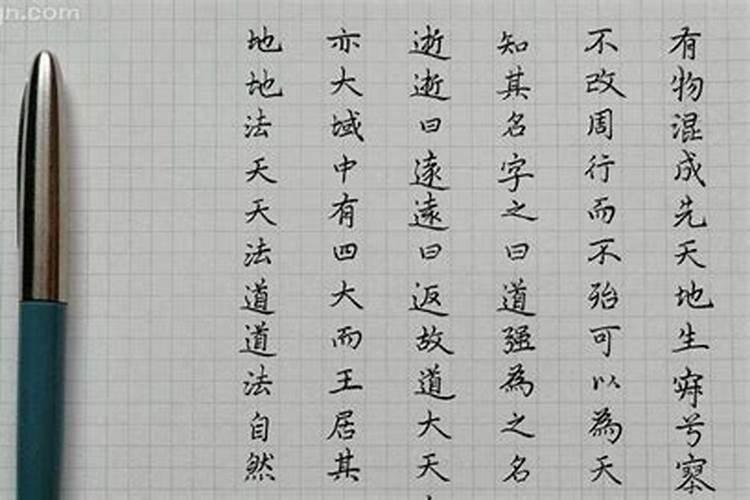 有物混成先天地生寂兮寥
不改周行而不殆可以為天
知其名字之曰道强為之名
逝逝曰遠遠曰返故道大天
亦大域中有四大而王居其
地地法天天法道道法自然